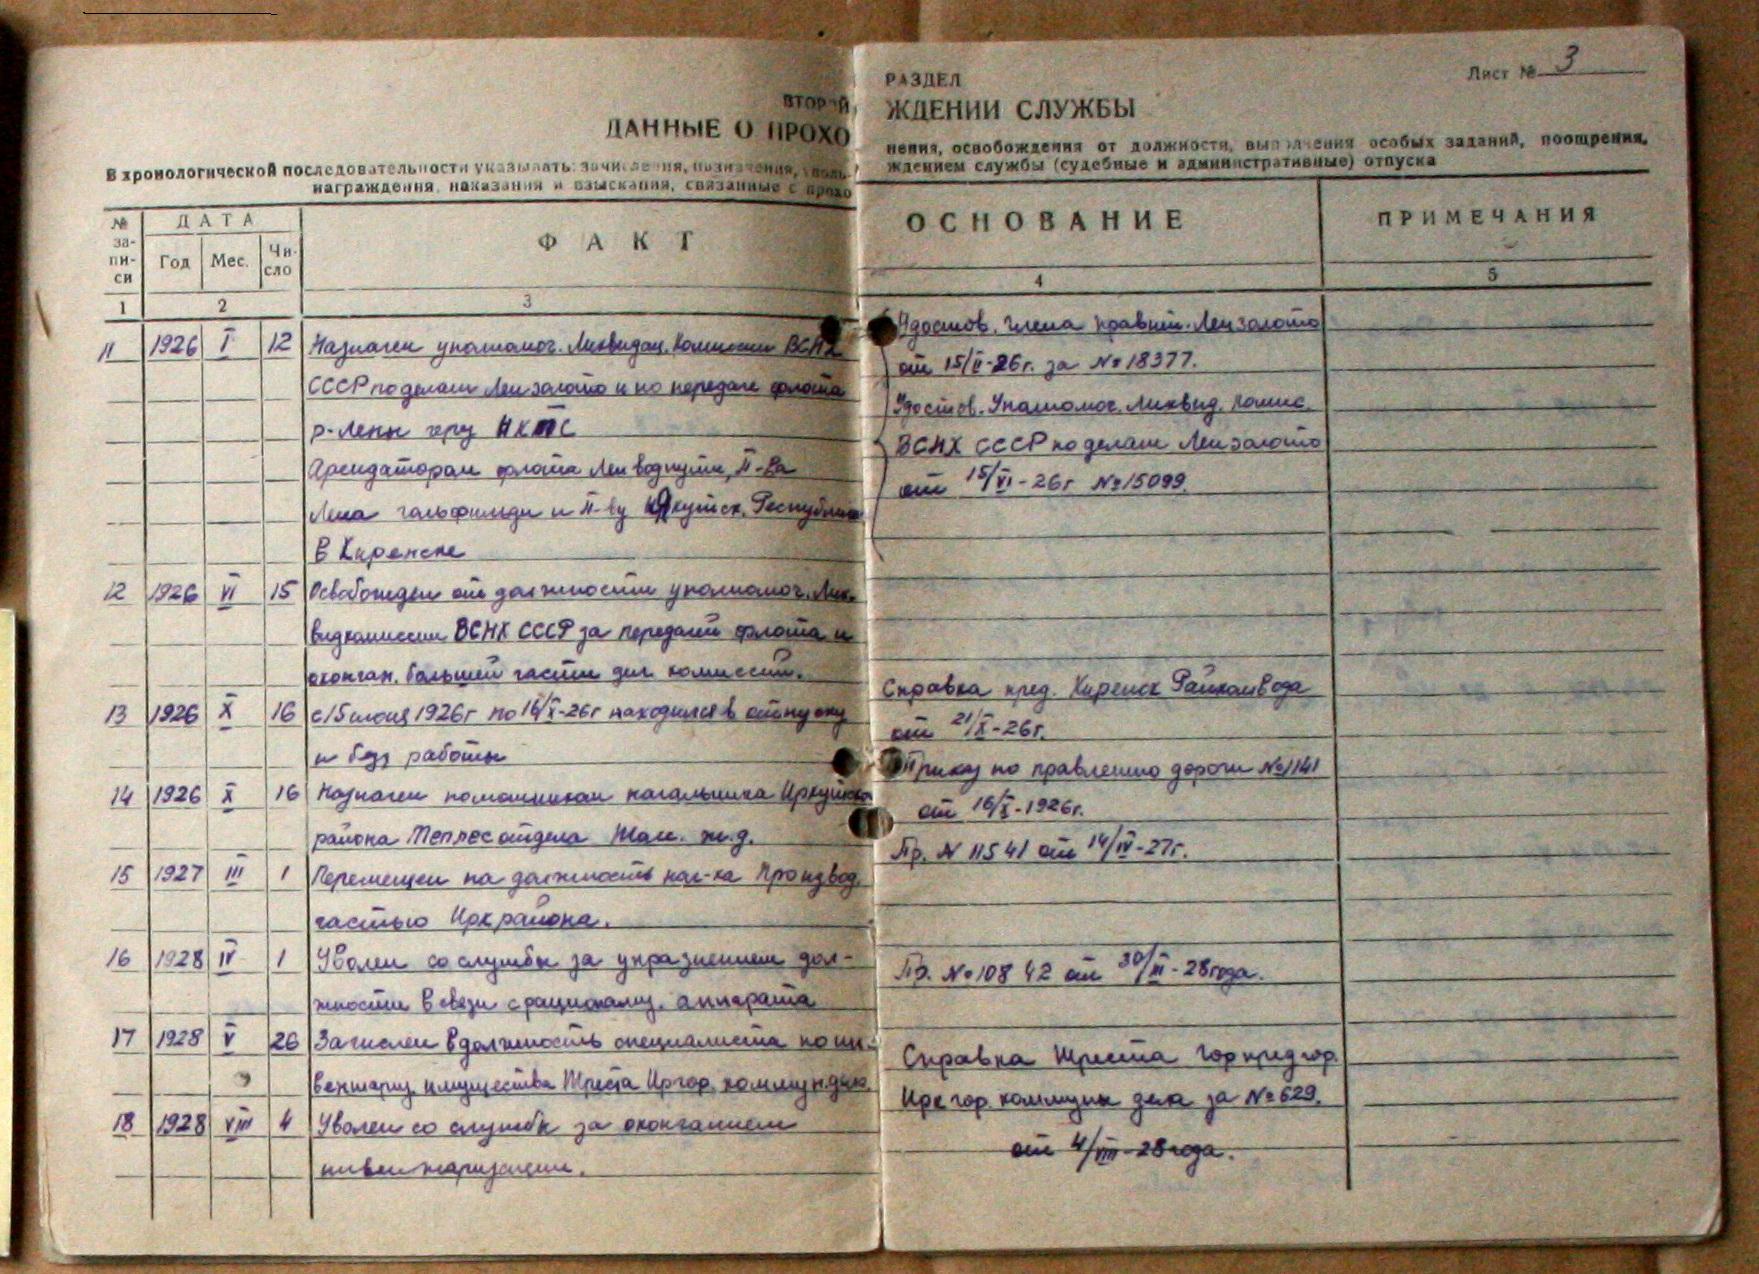 Лист № 3
ВТОРОЙ РАЗДЕЛ
ДАННЫЕ О ПРОХОЖДЕНИИ СЛУЖБЫ
В хронологической последовательности указывать: зачисления, назначения,
нения, освобождения от должности, выполнения особых заданий, поощрения,
награждения, наказания и взыскания, связанные с прохо
ждением службы (судебные и административные) отпуска
№ за-пи-си
ДАТА
Год Мес. Чи-сло
ФАКТ
ОСНОВАНИЕ
ПРИМЕЧАНИЯ
1 2 3 4 5
11 1926 I 12 Назначен уполномоч. Ликвидац. Комиссии ВСНХ
СССР по делам Лензолото и по передаче флота
р-Лены чрез НКПС
Арендаторам флота Лен водпути,
Лена гольфильдс и Якутск. Республики
в Киренске
Удостов. члена правит. Лензолото
от 15/V-26г. за № 18377.
Удостов. Уполномоч. Ликвид. комис.
ВСНХ СССР по делам Лензолото
от 15/VI-26г №15099.
12 1926 VI 15 Освобожден от должности уполномоч. Лик-
видкомиссии ВСНХ СССР за передачей флота и
окончан. большей части дел комиссии.
13 1926 X 16 с 15 июня 1926г по 16/X-26г находился в отпуску
и без работы
Справка пред. Киренск Райкомвода
от 21/X-26г.
14 1926 X 16 Назначен помощником начальника Иркутского
района отдела ж.д.
Приказ по правлению дороги №1141
от 16/X-1926г.
15 1927 III 1 Перемещен на должность нач-ка Производ.
частью Ирк района.
Пр. N 11541 от 14/IV-27г.
16 1928 IV 1 Уволен со службы за упразднением дол-
жности в связи с рационализ. аппарата
Пр. №10842 от 30/III-28года.
17 1928 V 26 Зачислен в должность специалиста по ин-
вентариз. имущества Треста Иргор.
Справка Треста
Иркгор. коммун дела за №629.
от 4/VIII-28года.
18 1928 VIII 4 Уволен со службы за окончанием
инвентаризации.